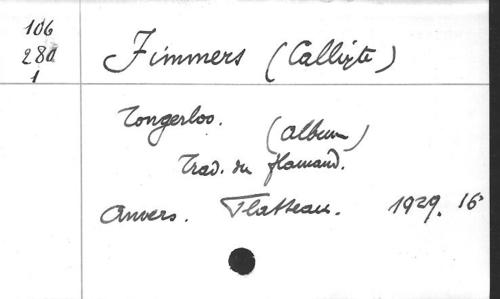 106
280
1
Fimmers (Calixte)
Tongerloo. (album)
Trad. du flamand.
Anvers. Flatteau. 1929. 16°